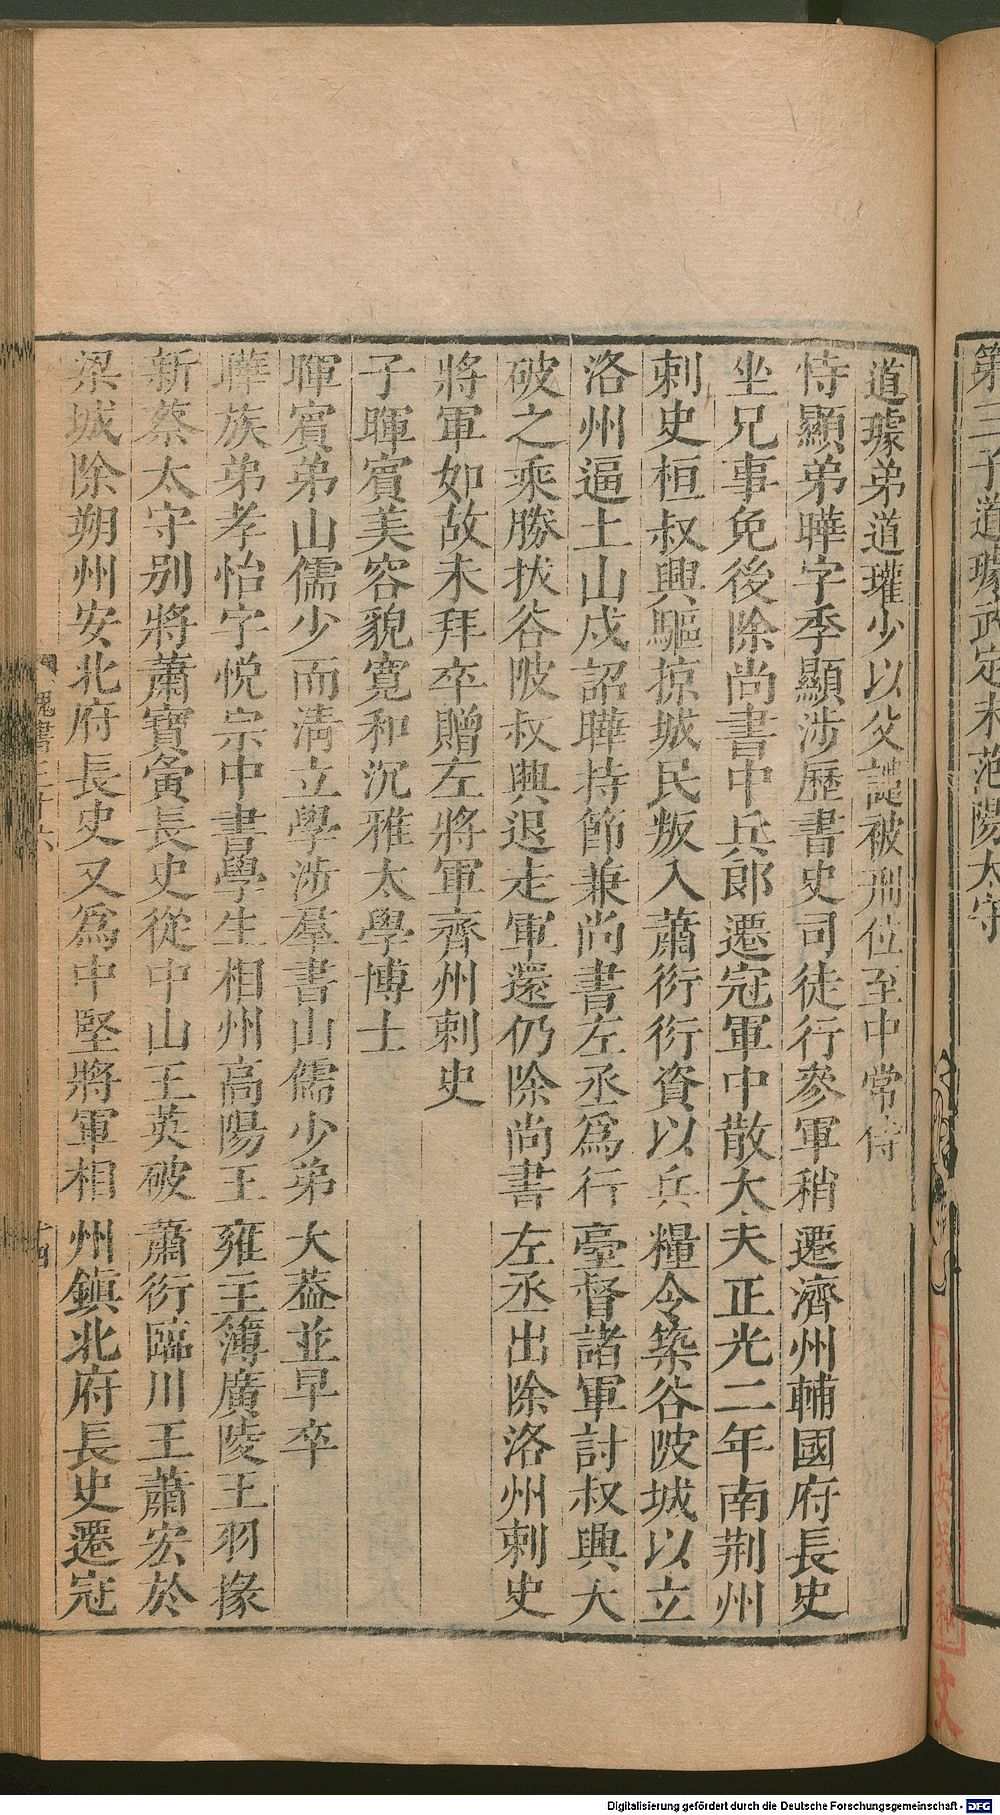 第三子道璩武定末范陽太守
道璩弟道瓘少以父譴被刑位至中常侍
恃顯弟曄字季顯涉歷書史司徒行參軍稍遷濟州輔國府長史
坐兄事免後除尚書中兵郎遷冠軍中散大夫正光二年南荆州
刺史桓叔興驅掠城民叛入蕭衍衍資以兵糧令築谷陂城以立
洛州逼土山戍詔曄持節兼尚書左丞爲行臺督諸軍討叔興大
破之乘勝拔谷陂叔興退走軍還仍除尚書左丞出除洛州刺史
將軍如故未拜卒贈左將軍齊州刺史
子暉賓美容貌寬和沉雅太學博士
暉賓弟山儒少而清立學涉羣書山儒少弟大葢並早卒
曄族弟孝怡字悅宗中書學生相州高陽王雍主簿廣陵王羽掾
新蔡太守别將蕭寶夤長史從中山王英破蕭衍臨川王蕭宏於
梁城除朔州安北府長史又爲中堅將軍相州鎭北府長史遷冠
魏書三十六
十四
Digitalisierung gefördert durch die Deutsche Forschungsgemeinschaft - DFG